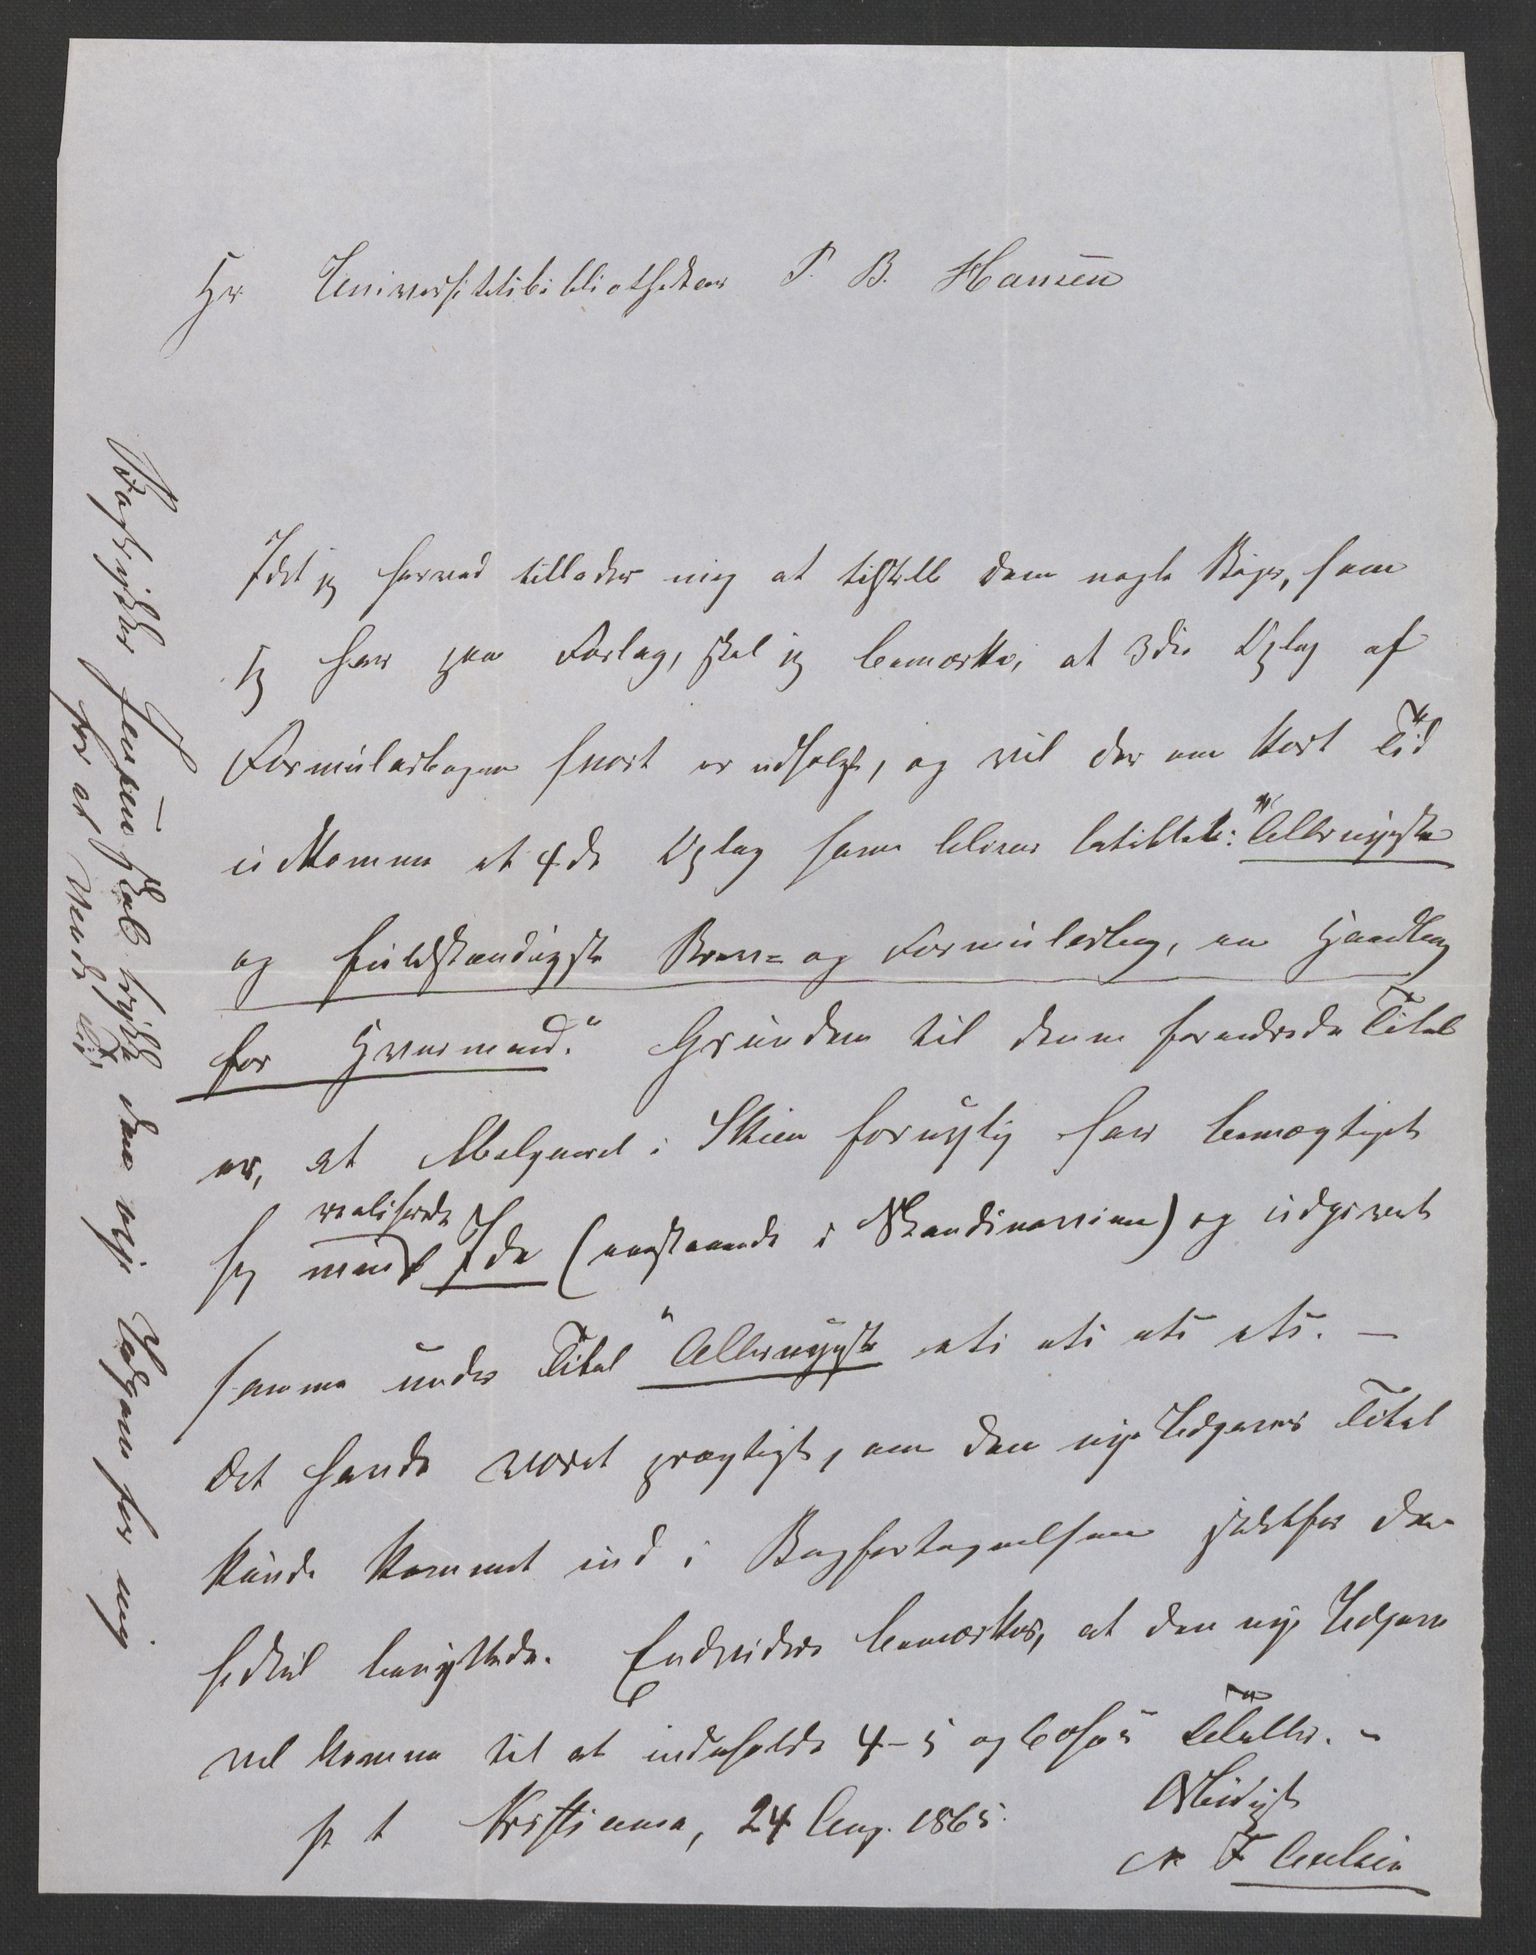 Hr Universitetsbibliothekar P. B. Hansen
Idet jeg herved tillader mig at tilstille Dem nogle Bøger, som
jeg har paa Forlag, skal jeg bemærke, at 3die Oplag af
Formularbogen snart er udsolgt, og vil der om kort Tid
udkomme et 4de Oplag som bliver betitlet: "Allernyeste
og fuldstændigste Brev= og Formularbog, en Haandbog
for Hvermand." Grunden til denne forandrede Titel
er, at Melgaard i Skien fornylig har bemægtiget
sig min realiserede Ide (enestaaende i Skandinavien) og udgivet
samme under Titel "Allernyeste etc etc etc etc. —
Det havde været prægtigt, om den nye Udgaves Titel
kunde kommet ind i Bogfortegnelsen istedetfor den
hidtil benyttede. Endvidere bemærkes, at den nye Udgave
vil komme til at indeholde 4-5 og Tabeller. -
p t Kristiania, 24 Aug. 1865.
Ærbødigst
N F Axelsen
Bogtrykker Jensen skal trykke den nye Udgave for mig